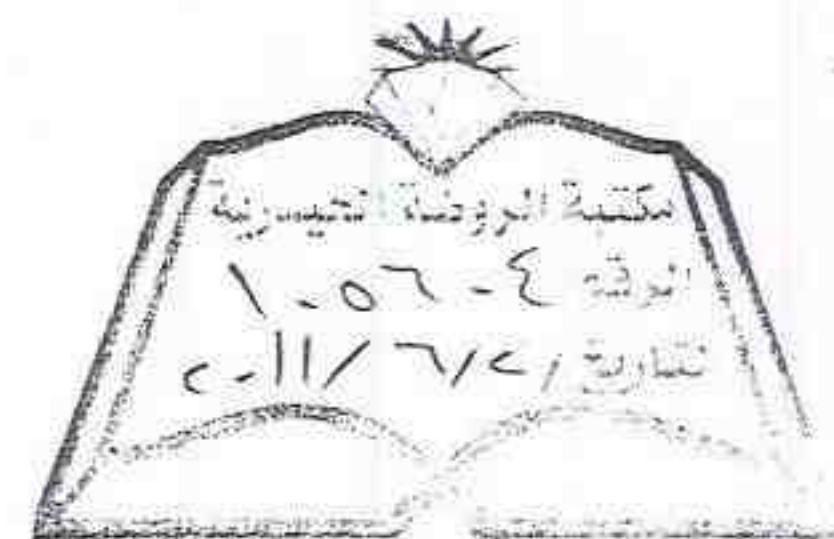 مكتبة الروضة الحيدرية
الرقم ١٠٥٦٠٤
التاريخ ٢٠١١/٦/٢